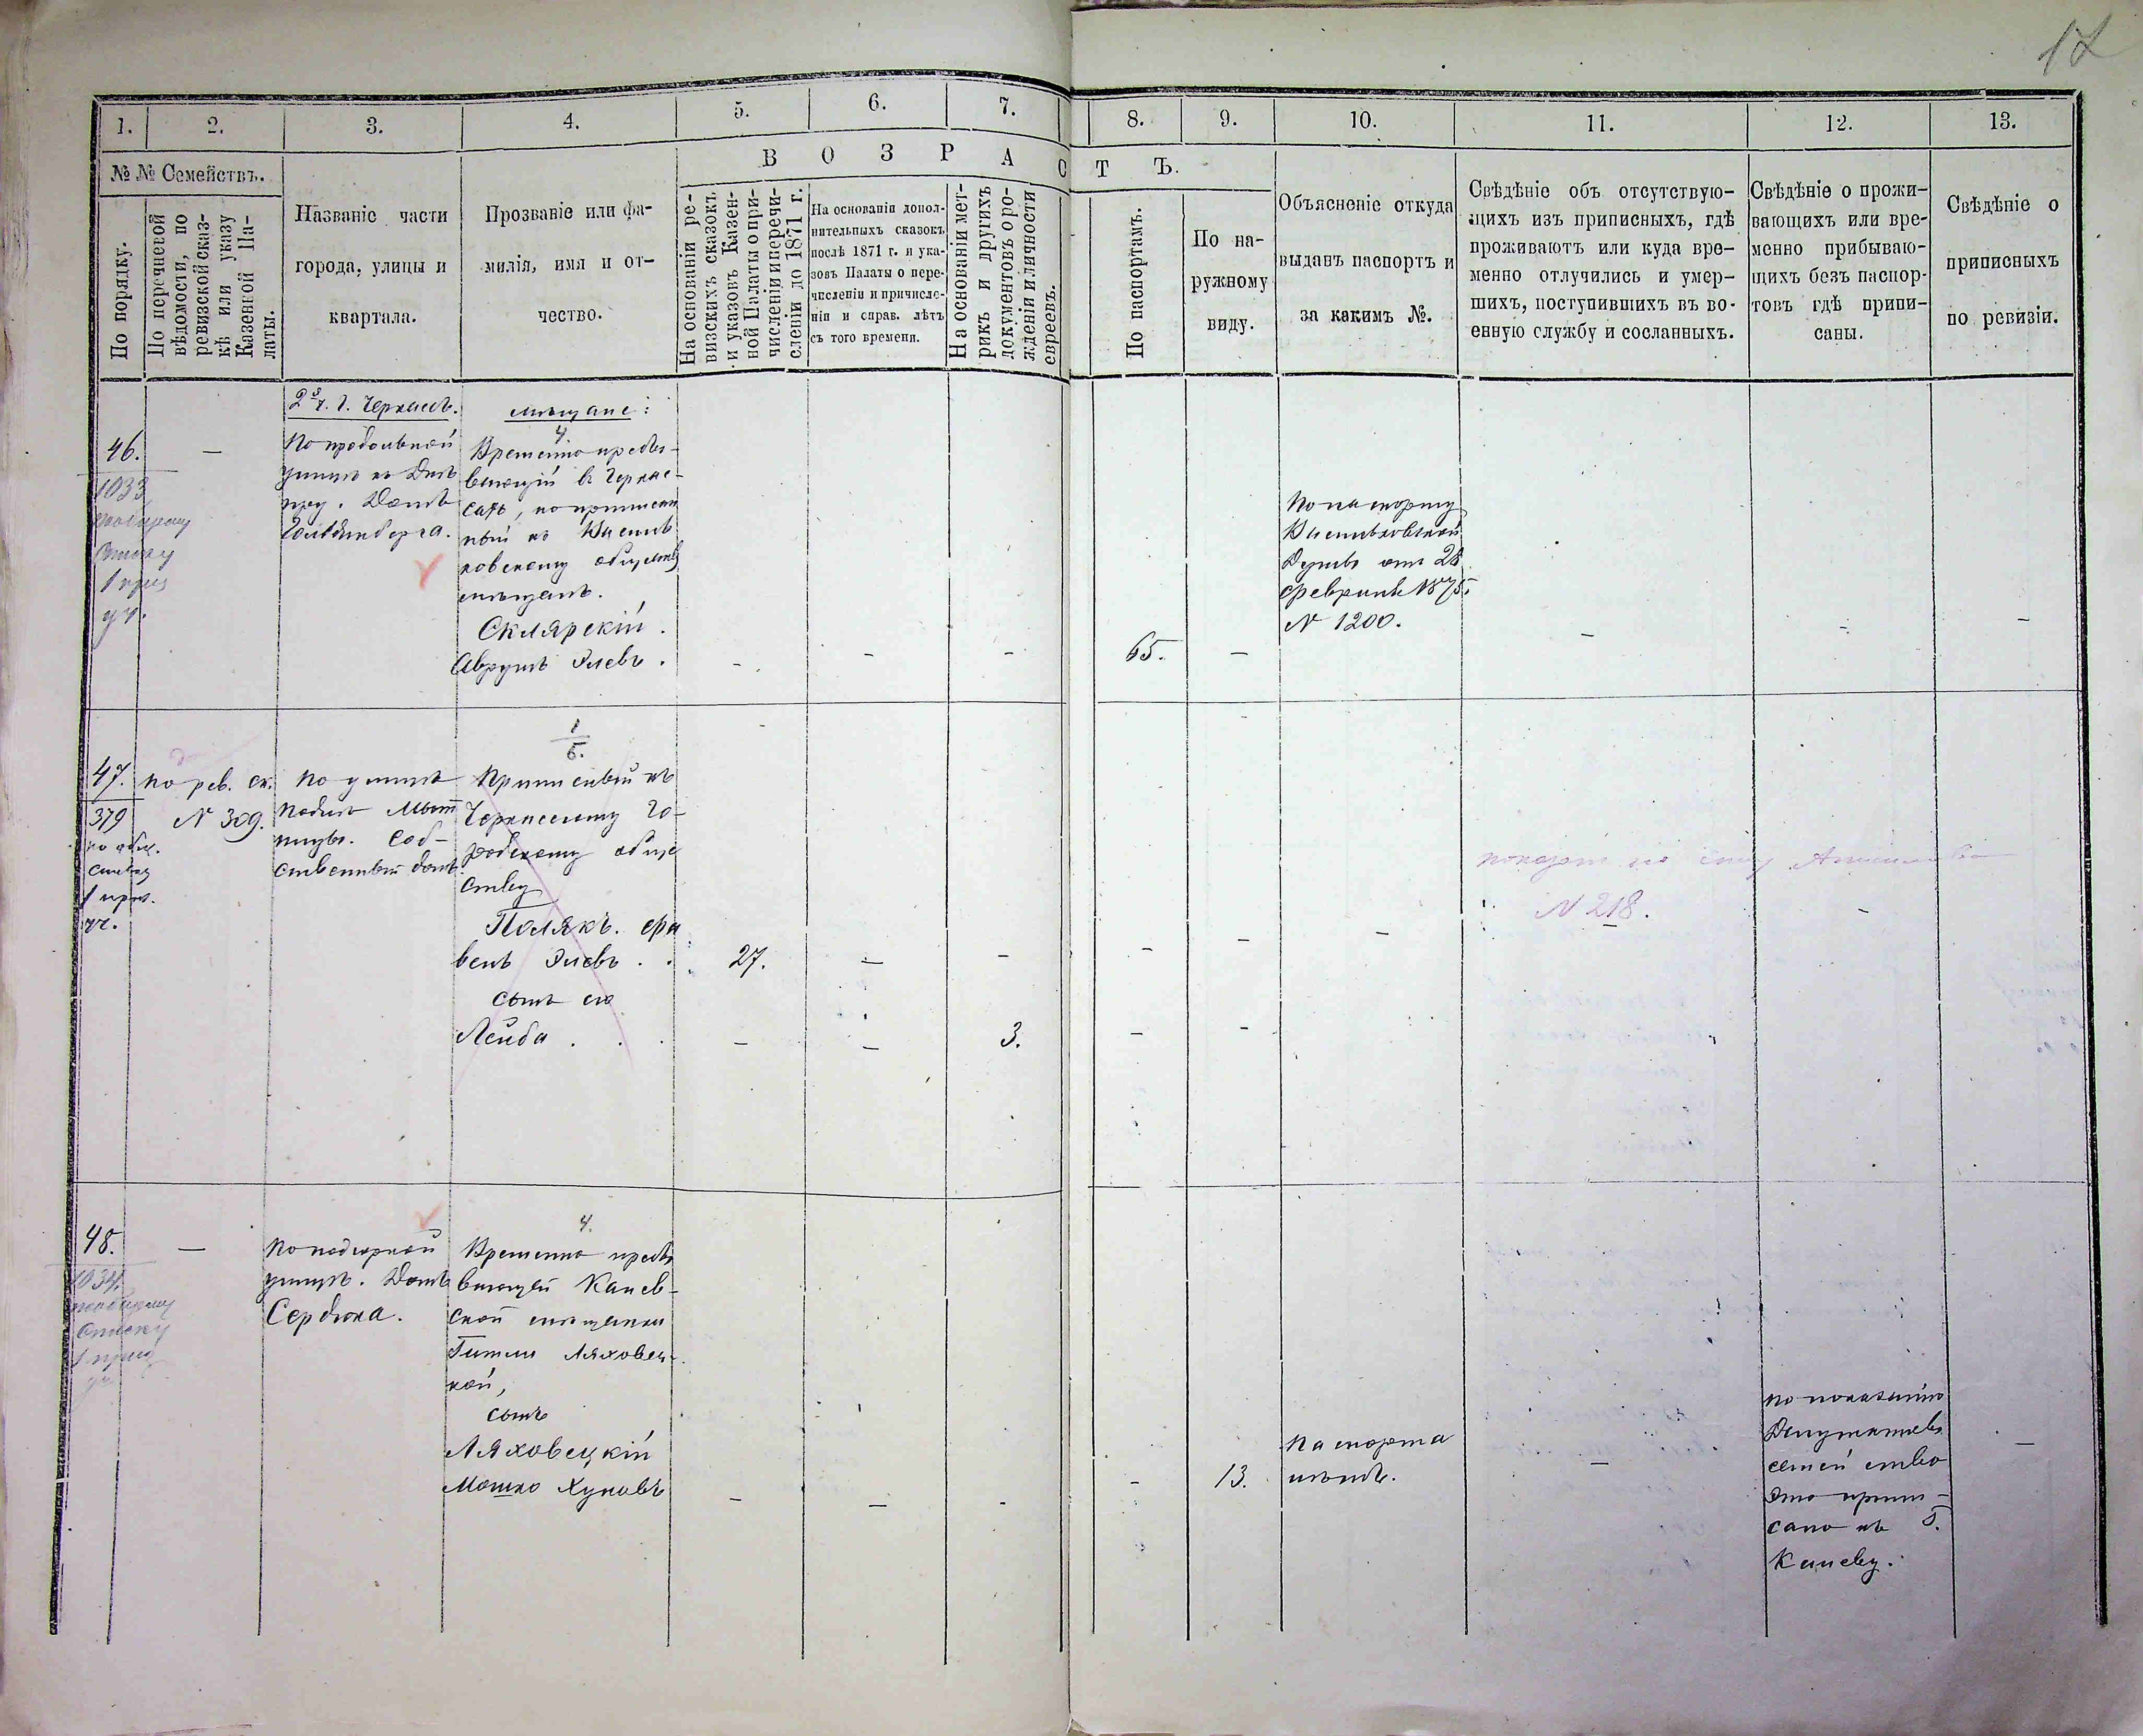 1.
2.
3.
4.
5.
6.
7.
8.
9.
10.
11.
12.
13.
№ № Семействъ.
По порядку.
По перечневой
вѣдомости, по
ревизской сказ-
кѣ или указу
Казенной Па-
латы.
Названіе части
города, улицы и
квартала.
Прозваніе или фа-
милія, имя и от-
чество.
ВОЗРАСТЪ.
На основаніи ре-
визскихъ сказокъ
и указовъ Казен-
ной Палаты о при-
численіи и перечи-
сленіи до 1871 г.
На основаніи допол-
нительныхъ сказокъ
послѣ 1871 г. и ука-
зовъ Палаты о пере-
численіи и причисле-
ніи и справ. лѣтъ
съ того времени.
На основаніи мет-
рикъ и другихъ
документовъ о ро-
жденіи и личности
евреевъ.
По паспортамъ.
По на-
ружному
виду.
Объясненіе откуда
выданъ паспортъ и
за какимъ №.
Свѣдѣніе объ отсутствую-
щихъ изъ приписныхъ, гдѣ
проживаютъ или куда вре-
менно отлучились и умер-
шихъ, поступившихъ въ во-
енную службу и сосланныхъ.
Свѣдѣніе о прожи-
вающихъ или вре-
менно прибываю-
щихъ безъ паспор-
товъ гдѣ припи-
саны.
Свѣдѣніе о
приписныхъ
по ревизіи.
46.
—
1033
1 приз
уч.
2й ч. г. Черкасъ.
По продольной
улицѣ къ Днѣ
пру. Домъ
Гольденберга.
мѣщане:
4
Временно пребы-
вающій въ Черкас-
сахъ, но приписан
ный къ Василь
ковскому обществу
мѣщанъ.
Склярскій.
Аврумъ Элевъ.
65.
По паспорту
Васильковской
Думы отъ 28
февраля 1875.
№ 1200.
47.
379
по общ.
списку
1 приз.
уч.
по рев. ск.
№ 309.
По улицѣ
подлѣ Мыт
ницы. Соб-
ственный домъ
1
5.
Приписный къ
Черкасскому го-
родскому обще
ству
Полякъ. Фа
вель Элевъ..
27.
сынъ его
Лейба...
3.
№ 218.
48.
—
1034
1 приз
уч.
По подгорной
улицѣ. Домъ
Сердюка.
4.
Временно пребы
вающей Канев-
ской мѣщанки
Гитли Ляховец-
кой,
сынъ
Ляховецкій
Мошко Хуновъ
13.
Паспорта
нѣтъ.
по показанію
Депутатовъ
семейство
это припи-
сано къ г.
Каневу.